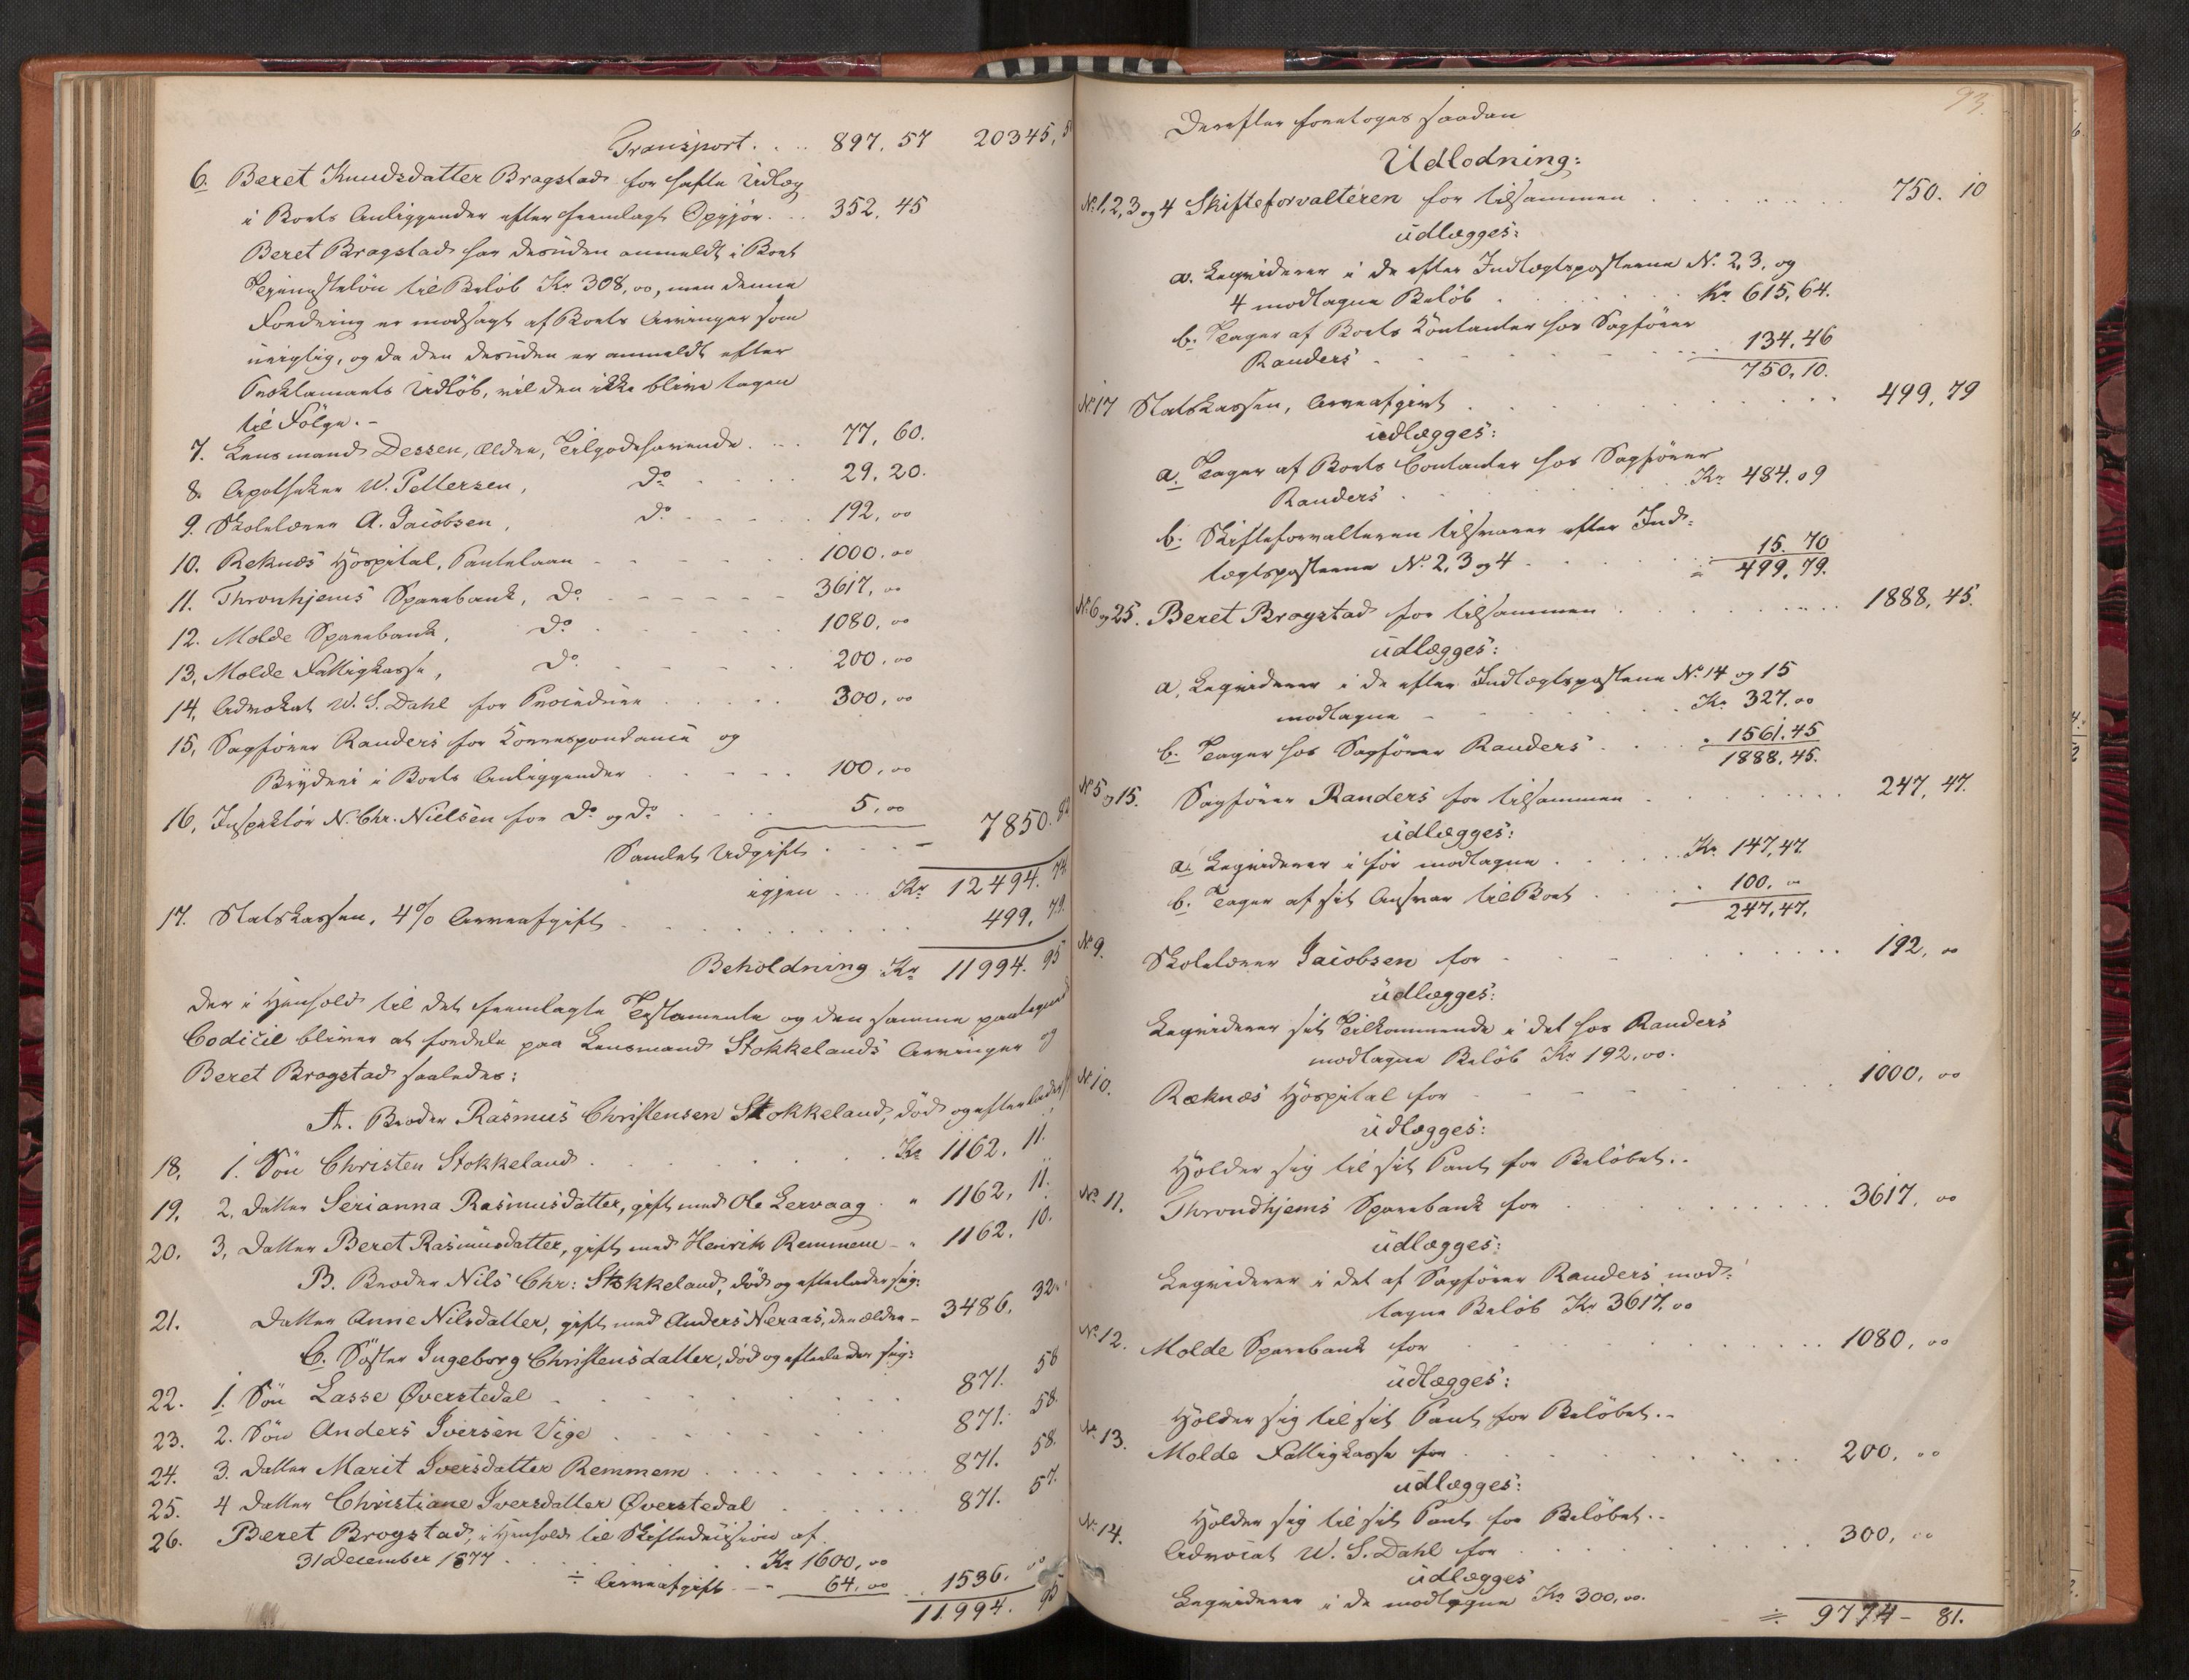 Transport. . . . 897. 57 20345, 5
6. Beret Knudsdatter Bragstad for hafte Udlæg
i Boets Anliggender efter fremlagt Opgjør. . . 352. 45
Beret Bragstad har desuden anmeldt i Boet
Tjenesteløn til Beløb Kr 308,00, men denne
Fordring er modsagt af Boets Arvinger som
urigtig, og da den desuden er anmeldt efter
Proklamaets Udløb, vil den ikke blive tagen
til Følge. -
7. Lensmand Dessen, ældre, Tilgodehavende. . . . 77. 60.
8. Apotheker W. Pettersen, Do . . . . 29. 20.
9. Skolelærer A. Jacobsen, Do . . . . 192. 00
10. Reknæs Hospital, Pantelaan - - - - - 1000. 00
11. Thronhjems Sparebank, Do. - - - - - 3617, 00
12. Molde Sparebank, Do. - - - - - 1080, 00
13, Molde Fattigkasse, Do. - - - - - 200. 00
14, Advokat W. S. Dahl for Procedure . . . . 300, 00
15, Sagfører Randers for Korrespondance og
Bryderi i Boets Anliggender . . . . 100, 00
16, Inspektör N. Chr. Nielsen for Do og Do . . . . 5, 00 7850. 82
Samlet Udgift . . . . -
igjen . . . Kr 12494. 74
17. Statskassen, 4% Arveafgift . . . . . . . 499. 79.
Beholdning Kr 11994. 95
der i Henhold til det fremlagte Testamente og den samme paategnede
Codicil bliver at fordele paa Lensmand Stokkelands Arvinger og
Beret Bragstad saaledes:
A. Broder Rasmus Christensen Stokkeland, død og efterlader
18. 1. Søn Christen Stokkeland . . . . . . Kr 1162. 11.
19. 2. Datter Serianna Rasmusdatter, gift med Ole Lervaag . " 1162, 11.
20. 3, Datter Beret Rasmusdatter, gift med Henrik Remmem - " 1162. 10.
B. Broder Nils Chr: Stokkeland, død og efterlader sig:
21. Datter Anne Nilsdatter, gift med Anders Neraas, den ældre - 3486. 32.
C. Søster Ingeborg Christensdatter, død og efterlader sig:
22. 1. Søn Lasse Øverstedal - . . . . . . . 871. 58
23. 2. Søn Anders Iversen Vige . . . . . . . 871. 58.
24. 3. Datter Marit Iversdatter Remmem . . . . . . . 871. 58.
25. 4 Datter Christiane Iversdatter Øverstedal . . . . 871. 57.
26. Beret Brogstad, i Henhold til Skiftedecision af
31 December 1877 . . . . . . Kr 1600, 00
÷ Arveafgift - - 64, 00 . . 1536. 00
11994. 95
93.
Derefter foretoges saadan
Udlodning:
No 1, 2, 3 og 4 Skifteforvalteren for tilsammen . . . . . . . 750. 10
udlægges:
a. Leqviderer i de efter Indtægtsposterne No. 2, 3, og
4 modtagne Beløb . . . . . . Kr 615, 64.
b. Tager af Boets Kontanter hos Sagfører
Randers . - - - - - - . . 134. 46
750. 10.
No 17 Statskassen, Arveafgift . . . . . . . 499, 79
udlægges:
a. Tager af Boets Contanter hos Sagfører
Randers . . . . . . . Kr 484. 09
b. Skifteforvalteren tilsvarer efter Ind-
tægtsposterne No. 2, 3 og 4 . . . . . . 15. 70
= 499, 79.
No 6 og 25. Beret Brogstad for tilsammen . . . . . . . 1888, 45.
udlægges:
a. Leqviderer i de efter Indtægtsposterne No 14 og 15
modtagne - . . . . . . Kr 327. 00
b. Tager hos Sagfører Randers . . . . 1561. 45
1888, 45.
No 5 og 15. Sagfører Randers for tilsammen . . . . . . . 247, 47.
udlægges:
a. Leqviderer i før modtagne . . . . . . Kr 147, 47
b. Tager af sit Ansvar til Boet . . . . 100. 00
247, 47.
No 9. Skolelærer Jacobsen for - . . . . . . . 192, 00
udlægges:
Leqviderer sit Tilkommende i det hos Randers
modtagne Beløb Kr 192, 00.
No 10. Ræknæs Hospital for - - - - - . . . . 1000, 00
udlægges:
Holder sig til sit Pant for Beløbet. -
No. 11. Throndhjems Sparebank for . . . . . . . 3617, 00
udlægges:
Leqviderer i det af Sagfører Randers mod-
tagne Beløb Kr 3617, 00
No. 12. Molde Sparebank for . . . . . . . 1080, 00
udlægges:
Holder sig til sit Pant for Beløbet. -
No. 13. Molde Fattigkasse for . . . . . . . 200, 00
udlægges:
Holder sig til sit Pant for Beløbet. -
No. 14. Advocat W. S. Dahl for . . . . . . . 300, 00
udlægges
Leqviderer i de modtagne Kr 300, 00.
÷ 9774 - 81.